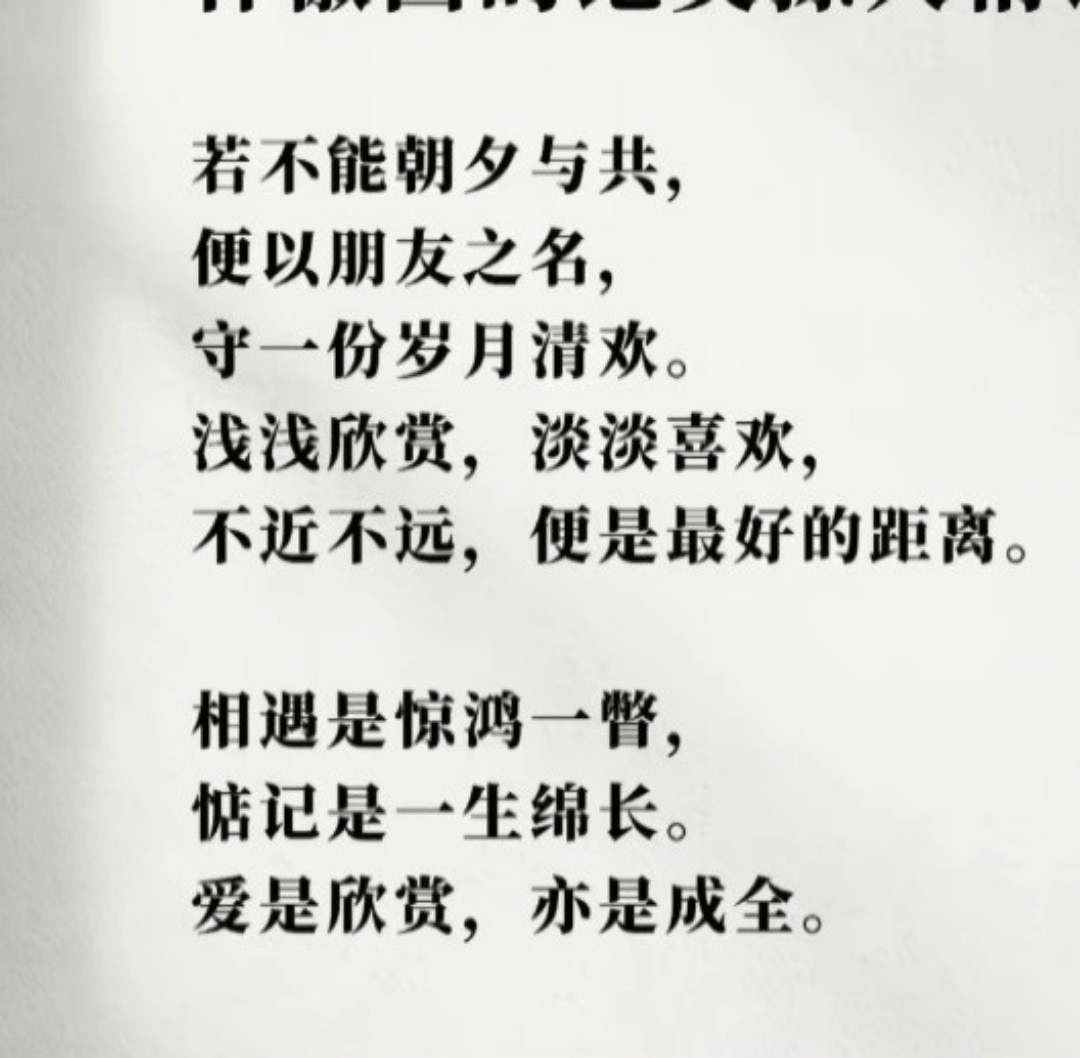 若不能朝夕与共，
便以朋友之名，
守一份岁月清欢。
浅浅欣赏，淡淡喜欢，
不近不远，便是最好的距离。
相遇是惊鸿一瞥，
惦记是一生绵长。
爱是欣赏，亦是成全。